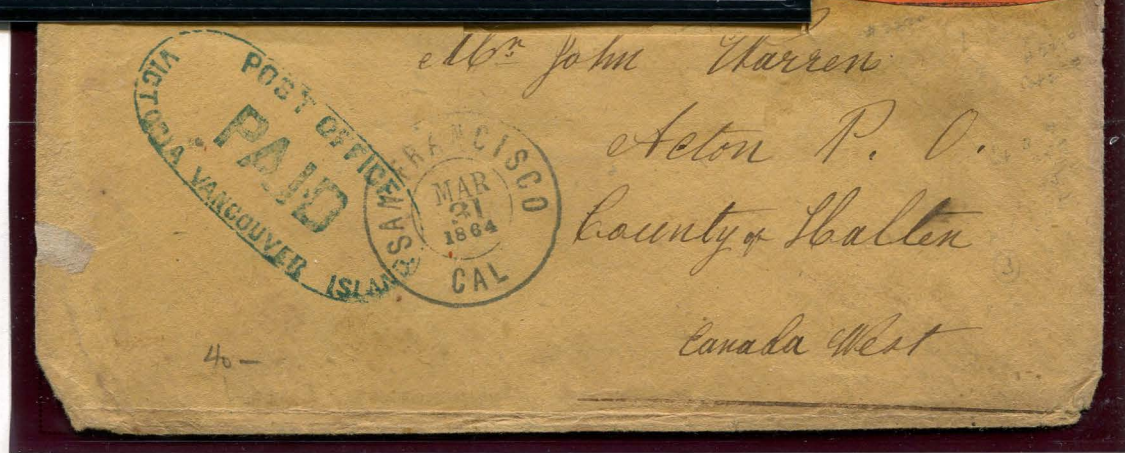 POST OFFICE
PAID
VICTORIA VANCOUVER ISLAND
SAN FRANCISCO
MAR
31
1864
CAL
Mr John Warren
Acton P. O.
County of Halton
Canada West
40 —
3